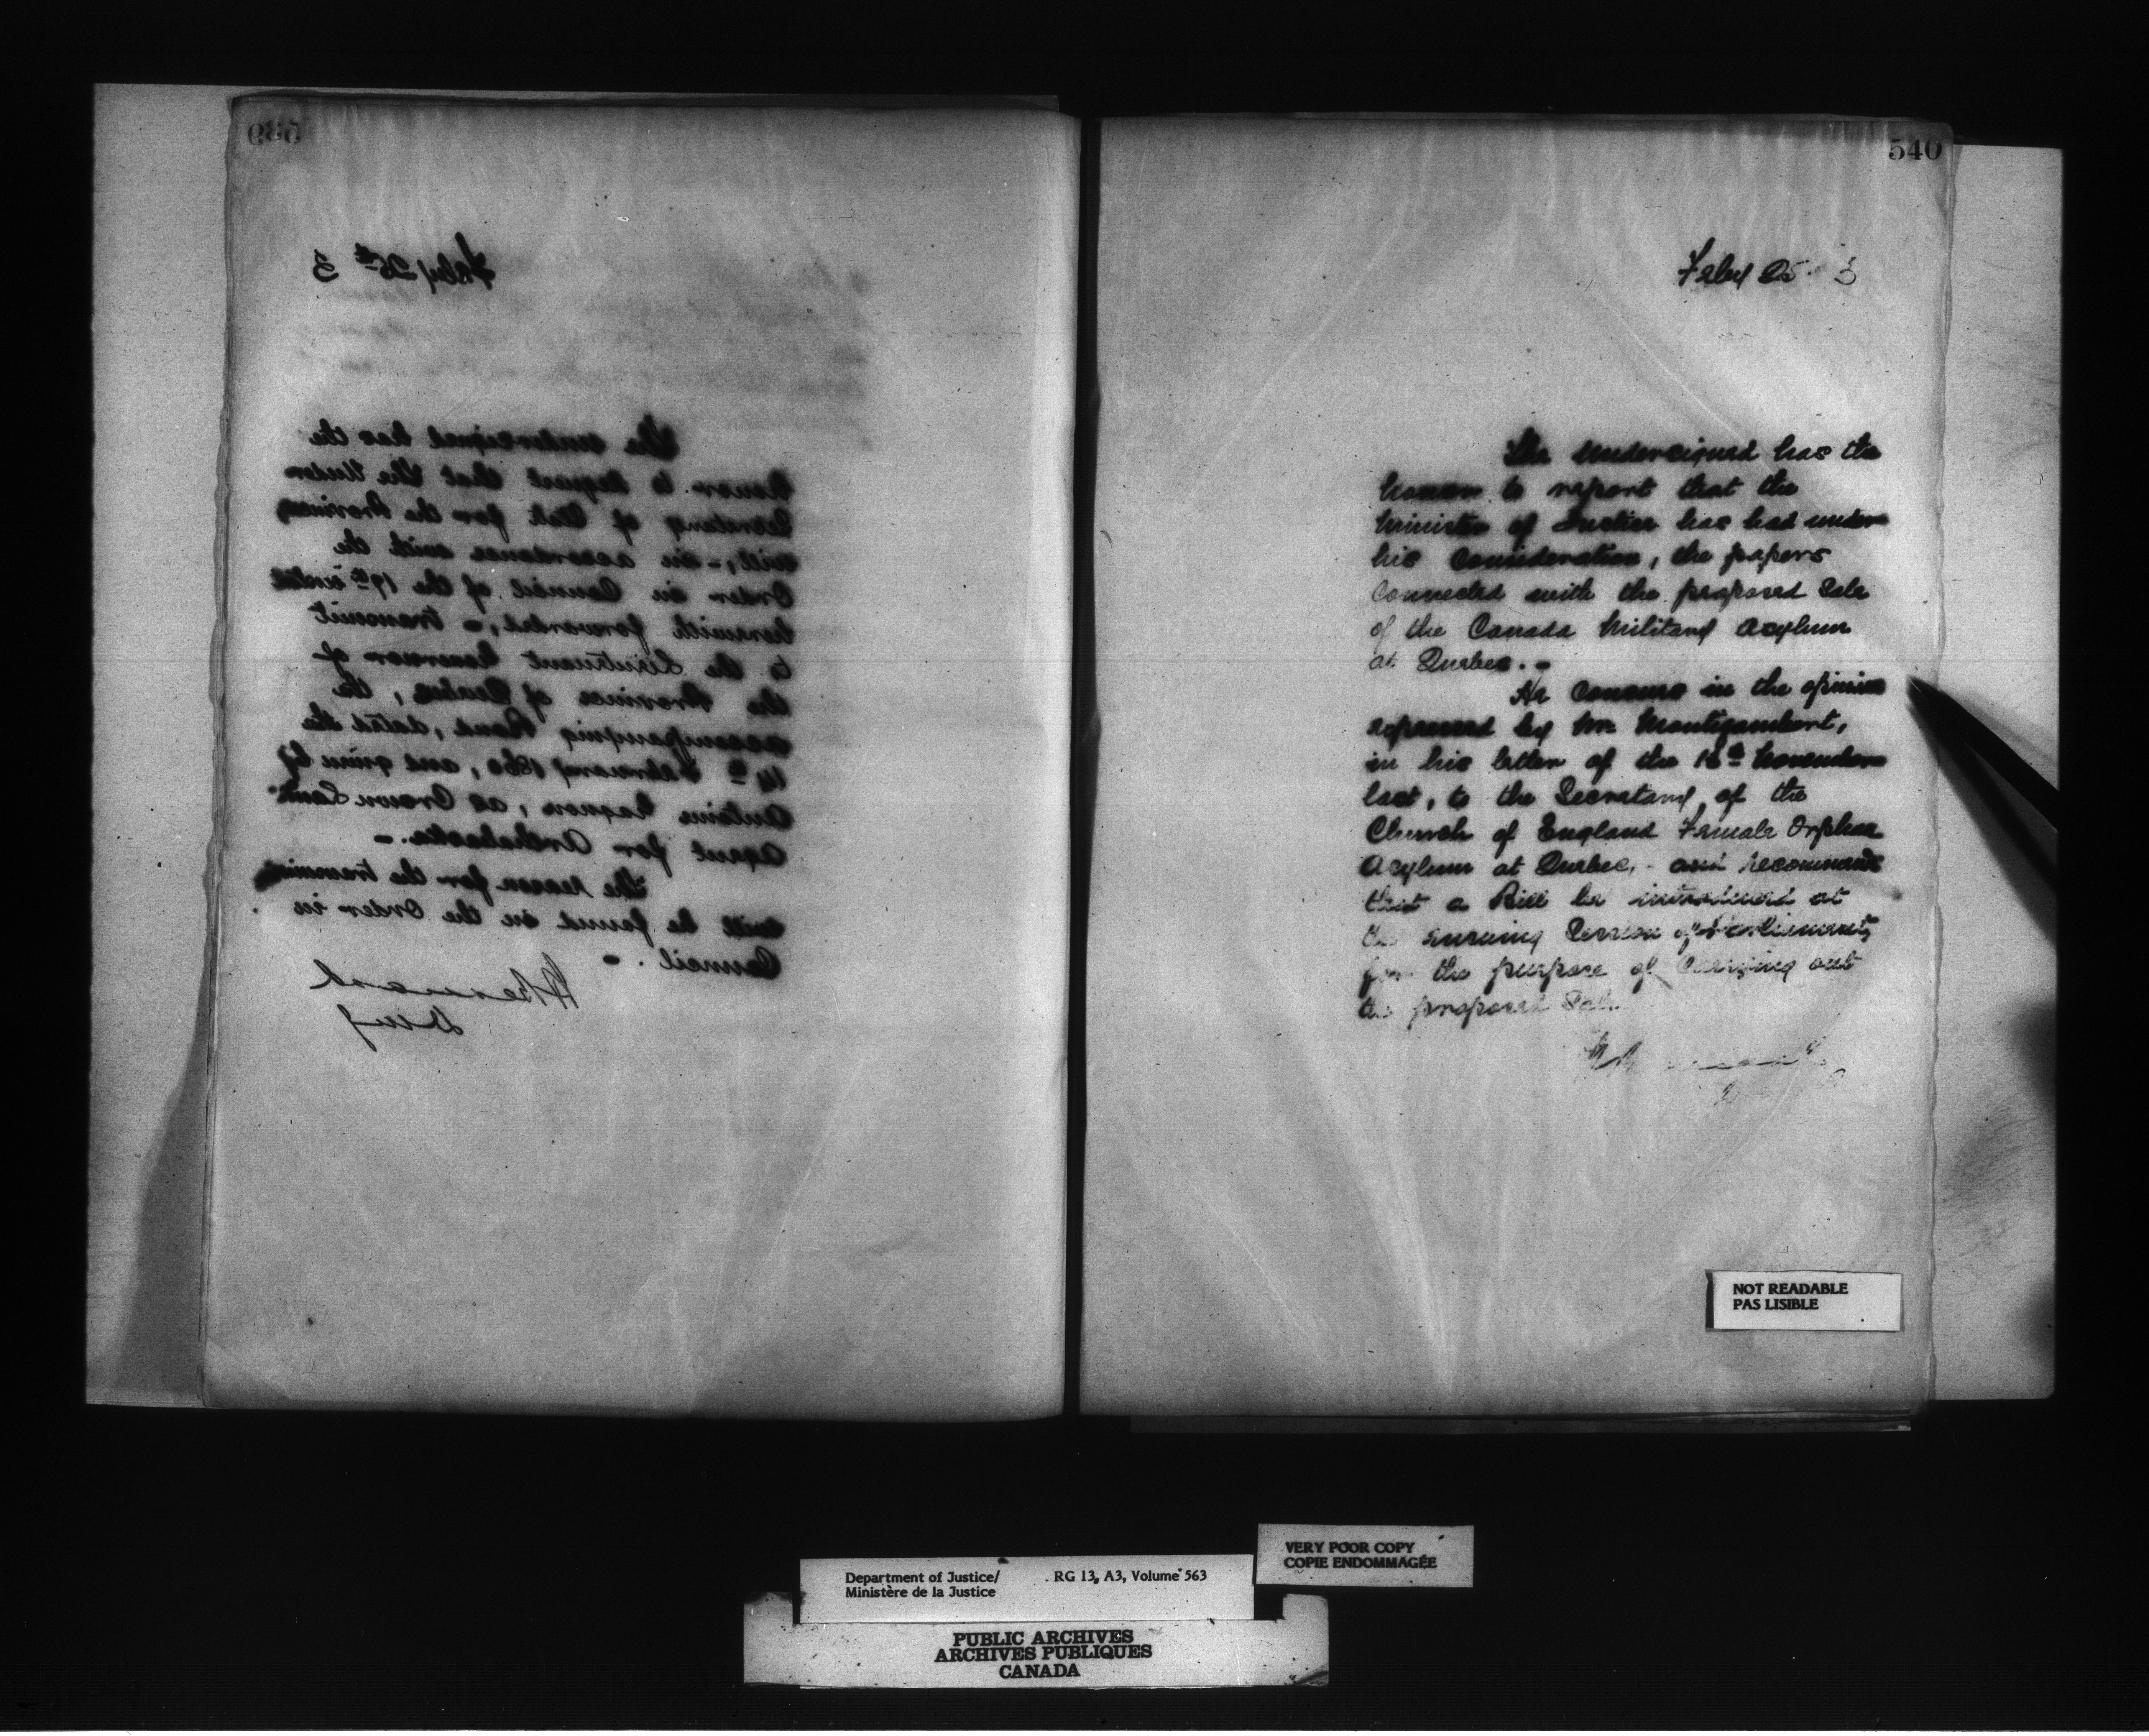 539
Feby 25th 3
The undersigned has the
honor to report that the Under
Secretary of State for the Provinces
will, - in accordance with the
Order in Council of the 19th instant
herewith forwarded, - transmit
to the Lieutenant Governor of
the Province of Quebec, the
accompanying Bond, dated the
14th February 1860, and given by
Antoine Gagnon, as Crown Land
agent for Arthabaska. -
The reason for the transmission
will be found in the Order in
Council. -
H Bernard
540
Feby 25 3
The undersigned has the
honor to report that the
Minister of Justice has had under
his consideration, the papers
connected with the proposed Sale
of the Canada Military Asylum
at Quebec. -
He concurs in the opinion
expressed by Mr. Montizambert,
in his letter of the 16th November
last, to the Secretary of the
Church of England Female Orphan
Asylum at Quebec, - and recommends
that a Bill be introduced at
the ensuing Session of Parliament
for the purpose of carrying out
the proposed Sale
NOT READABLE
PAS LISIBLE
VERY POOR COPY
COPIE ENDOMMAGÉE
Department of Justice/ RG 13, A3, Volume 563
Ministère de la Justice
PUBLIC ARCHIVES
ARCHIVES PUBLIQUES
CANADA